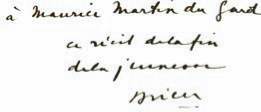 à Maurice Martin du Gard
ce récit de la fin
de la jeunesse
Drieu